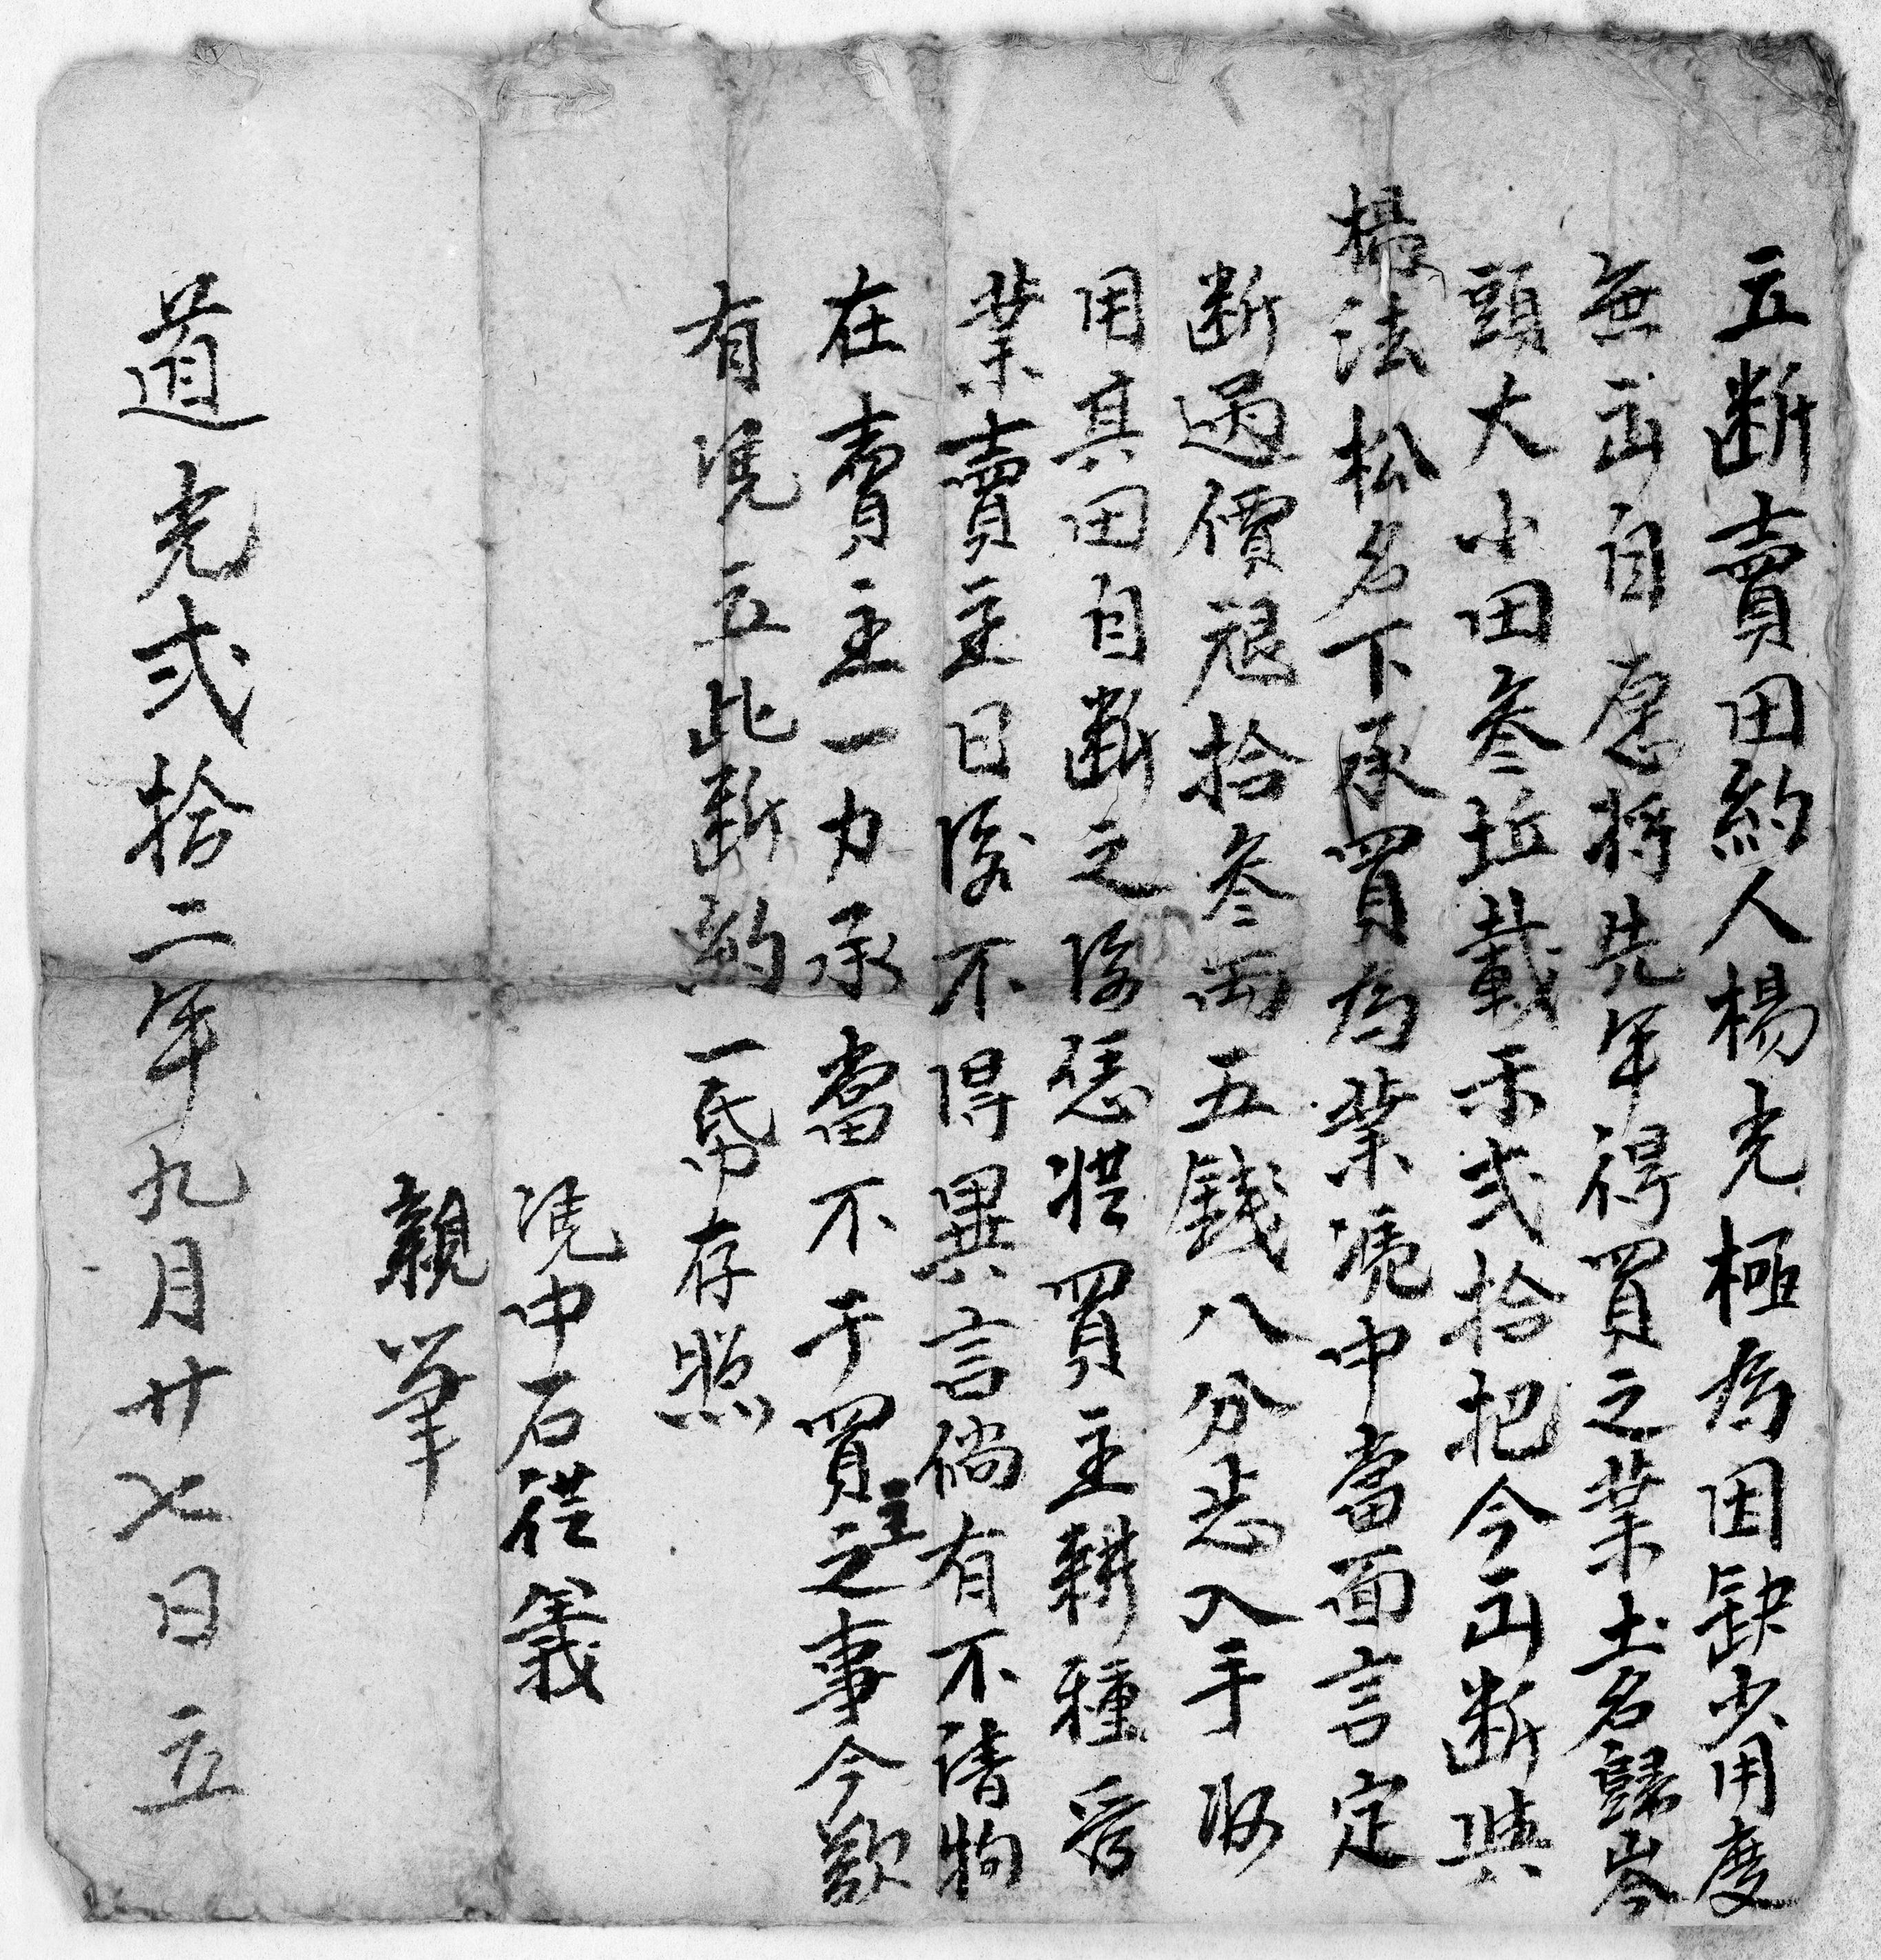 立断賣田約人楊光極為因缺少用度
無出自愿將先年得買之業土名歸岑
頭大小田叁坵載禾弍拾把今出断與
楊法松名下承買為業慿中當面言定
断過價艮拾叁両五錢八分悉入手收
用其田自断之後恁從買主耕種管
業賣主日後不得異言倘有不清拘
在賣主一力承當不干買主之事今欲
有凴立此断約一帋存照
凴中石從義
親筆
道光弍拾二年九月廿七日立